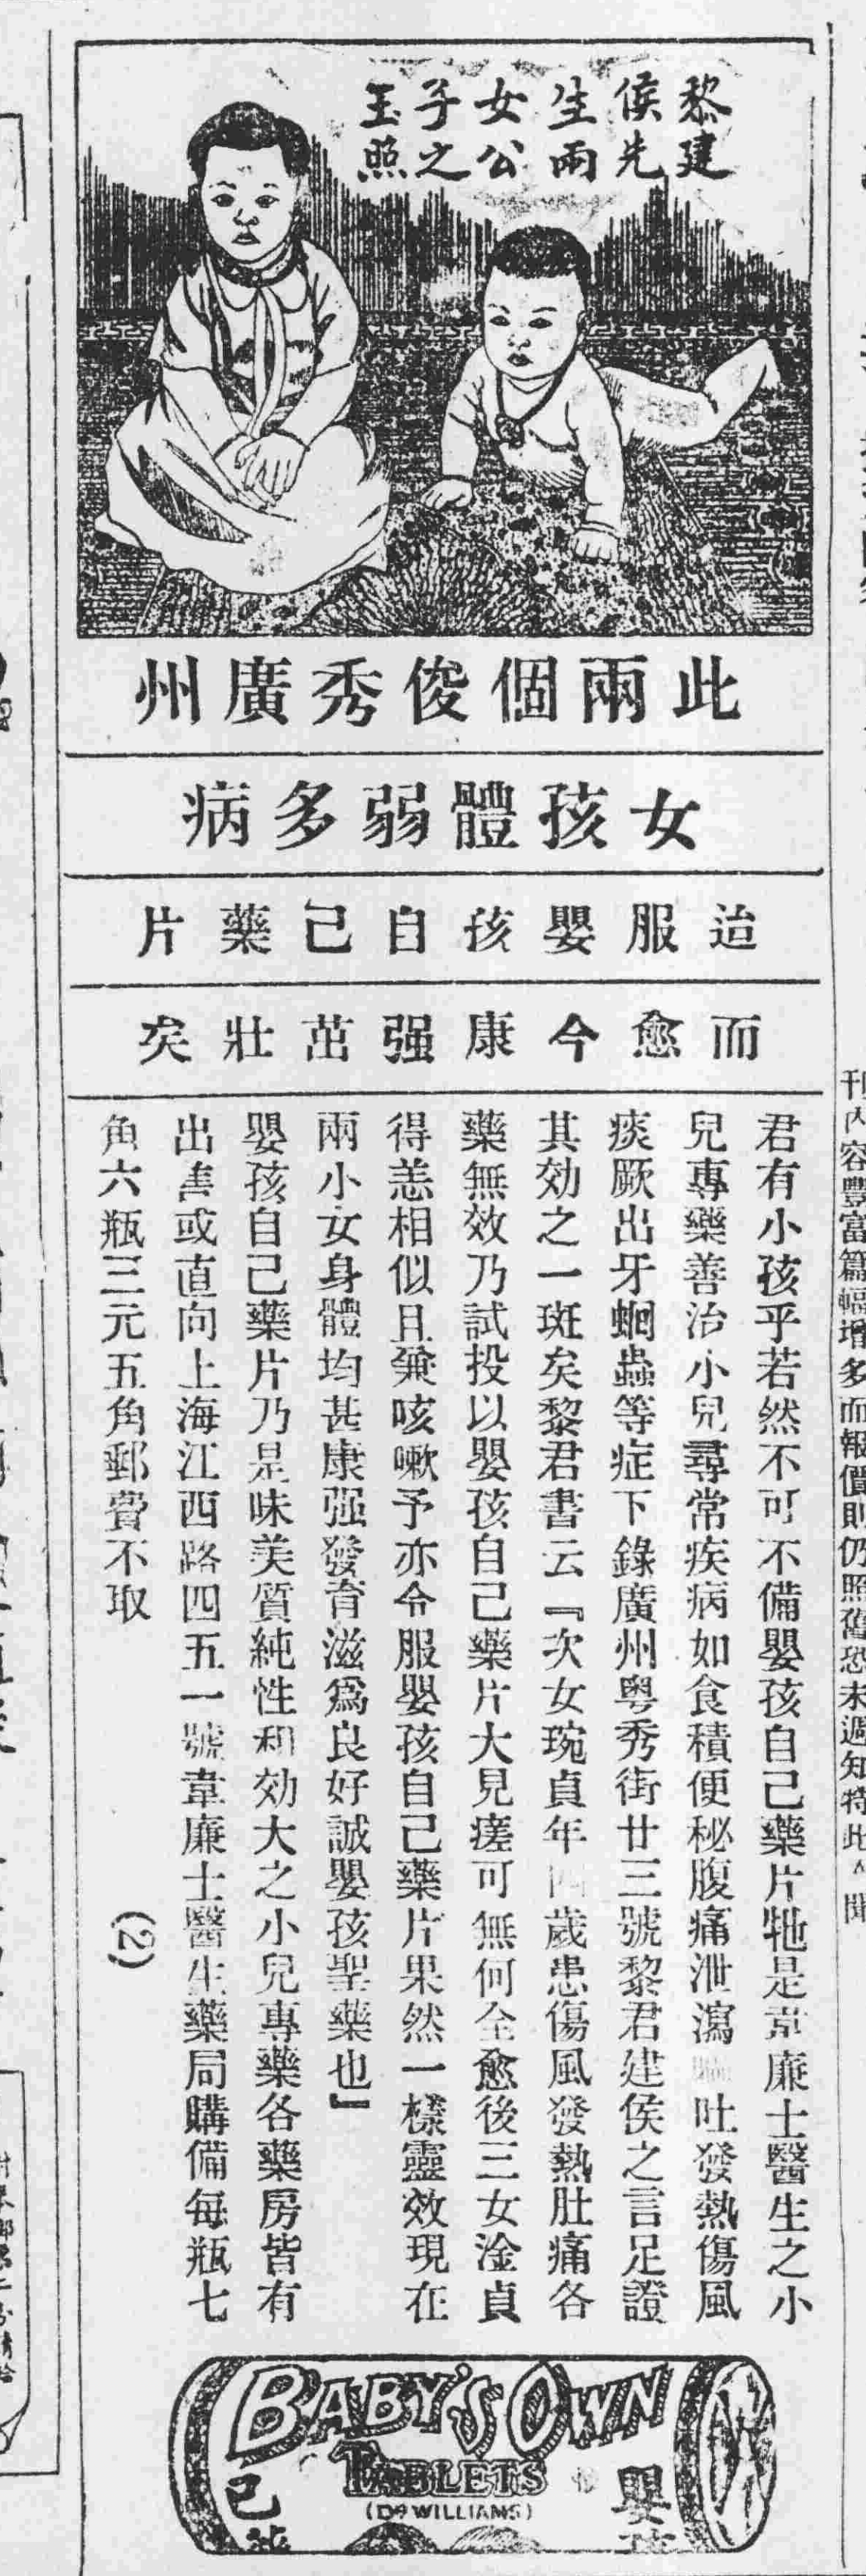 黎建
侯先
生兩
女公
子之
玉照
此兩個俊秀廣州
女孩體弱多病
迨服嬰孩自己藥片
而愈今康强茁壯矣
君有小孩乎若然不可不備嬰孩自己藥片牠是韋廉士醫生之小
兒專藥善治小兒尋常疾病如食積便秘腹痛泄瀉吐發熱傷風
痰厥出牙蛔蟲等症下錄廣州粤秀街廿三號黎君建侯之言足證
其効之一斑矣黎君書云『次女琬貞年四歲患傷風發熱肚痛各
藥無效乃試投以嬰孩自己藥片大見瘥可無何全愈後三女淦貞
得恙相似且兼咳嗽予亦令服嬰孩自己藥片果然一樣靈效現在
兩小女身體均甚康强發育滋爲良好誠嬰孩聖藥也』
嬰孩自己藥片乃是味美質純性和効大之小兒專藥各藥房皆有
出售或直向上海江西路四五一號韋廉士醫生藥局購備每瓶七
角六瓶三元五角郵費不取
(2)
BABY'S OWN
TABLETS
(DR WILLIAMS)
嬰孩
己藥
刊內容豐富篇幅增多而報價則仍照舊恐未週知特此聞